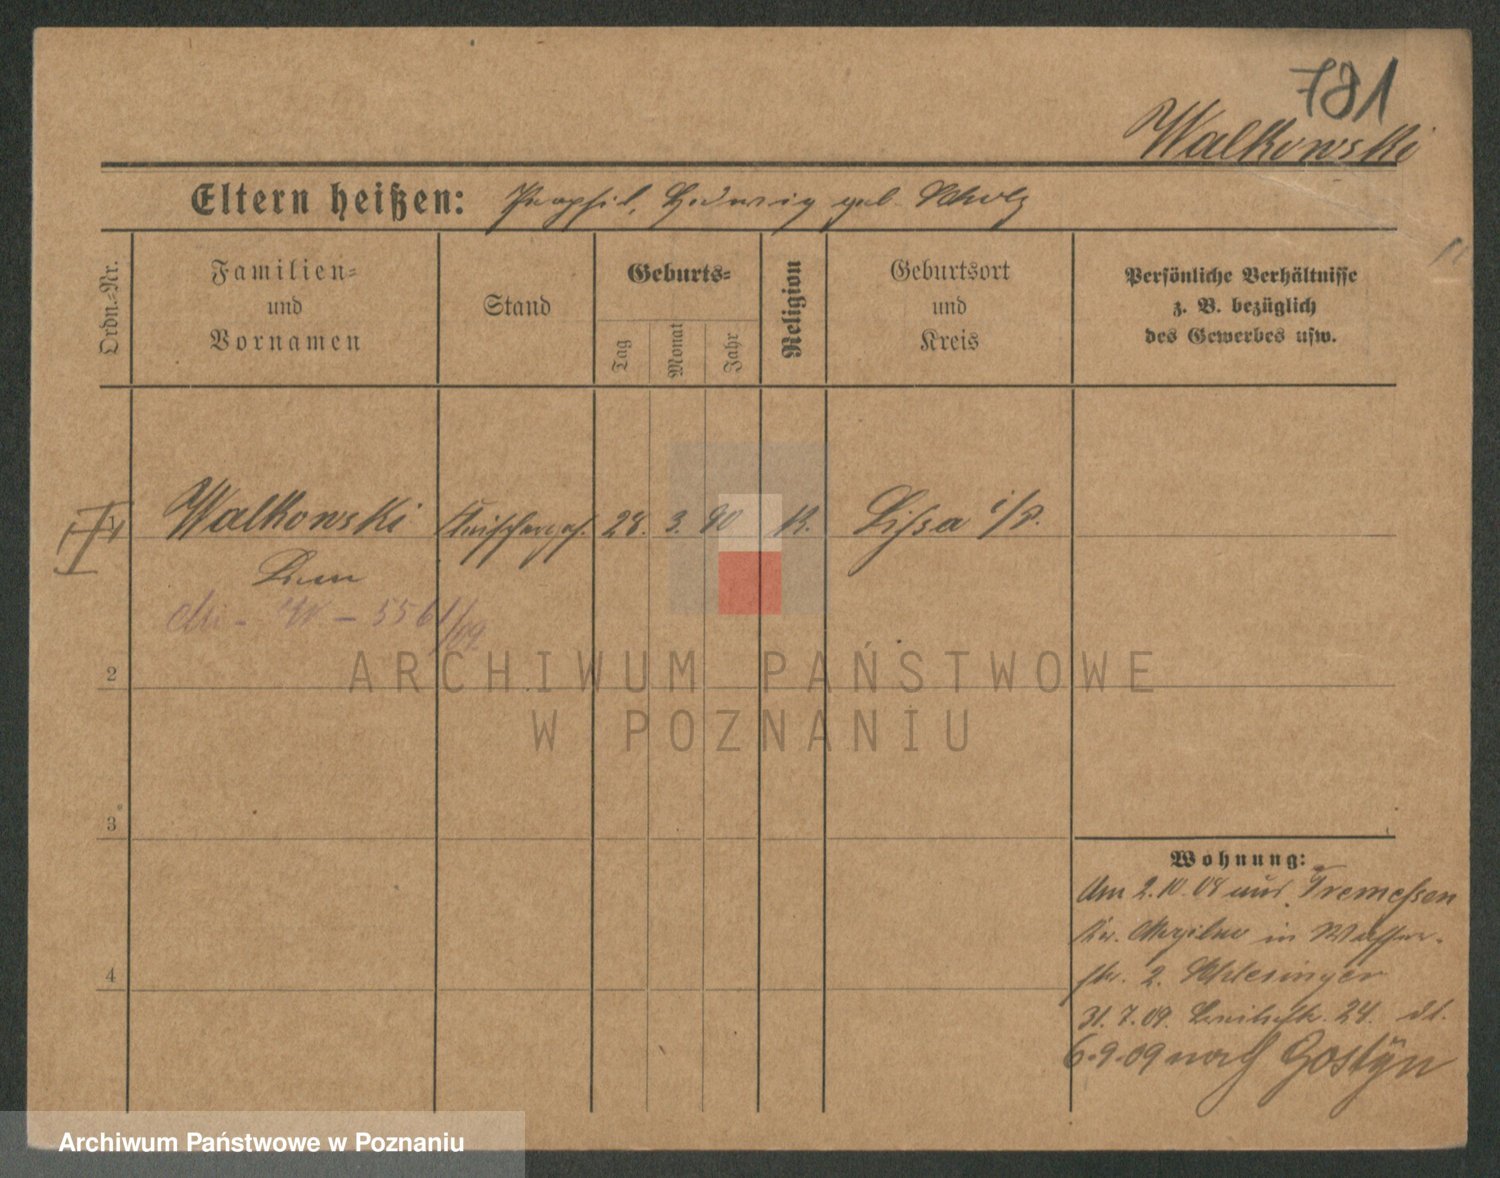 781
Walkowski
Eltern heißen: Theophil, Hedwig geb. Scholz
Ordn.-Nr.
Familien-
und
Vornamen
Stand
Geburts-
Tag
Monat
Jahr
Religion
Geburtsort
und
Kreis
Persönliche Verhältnisse
z. B. bezüglich
des Gewerbes usw.
Walkowski 28. 3. 90 K. Lissa i/P.
Leo
W - 5561/09
2
3
4
Wohnung:
Am 2.10.08 aus Tremessen
Kr. Mogilno in Wasser-
str. 2. Schlesinger
31.7.09. 24.
6.9.09 nach Gostyn
ARCHIWUM PAŃSTWOWE
W POZNANIU
Archiwum Państwowe w Poznaniu